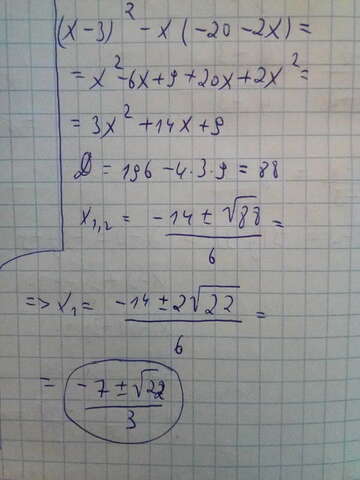 (x-3)² - x(-20-2x) =
= x² - 6x + 9 + 20x + 2x² =
= 3x² + 14x + 9
D = 196 - 4·3·9 = 88
x₁,₂ = (-14 ± √88)/6 =
=> x₁ = (-14 ± 2√22)/6 =
= (-7 ± √22)/3